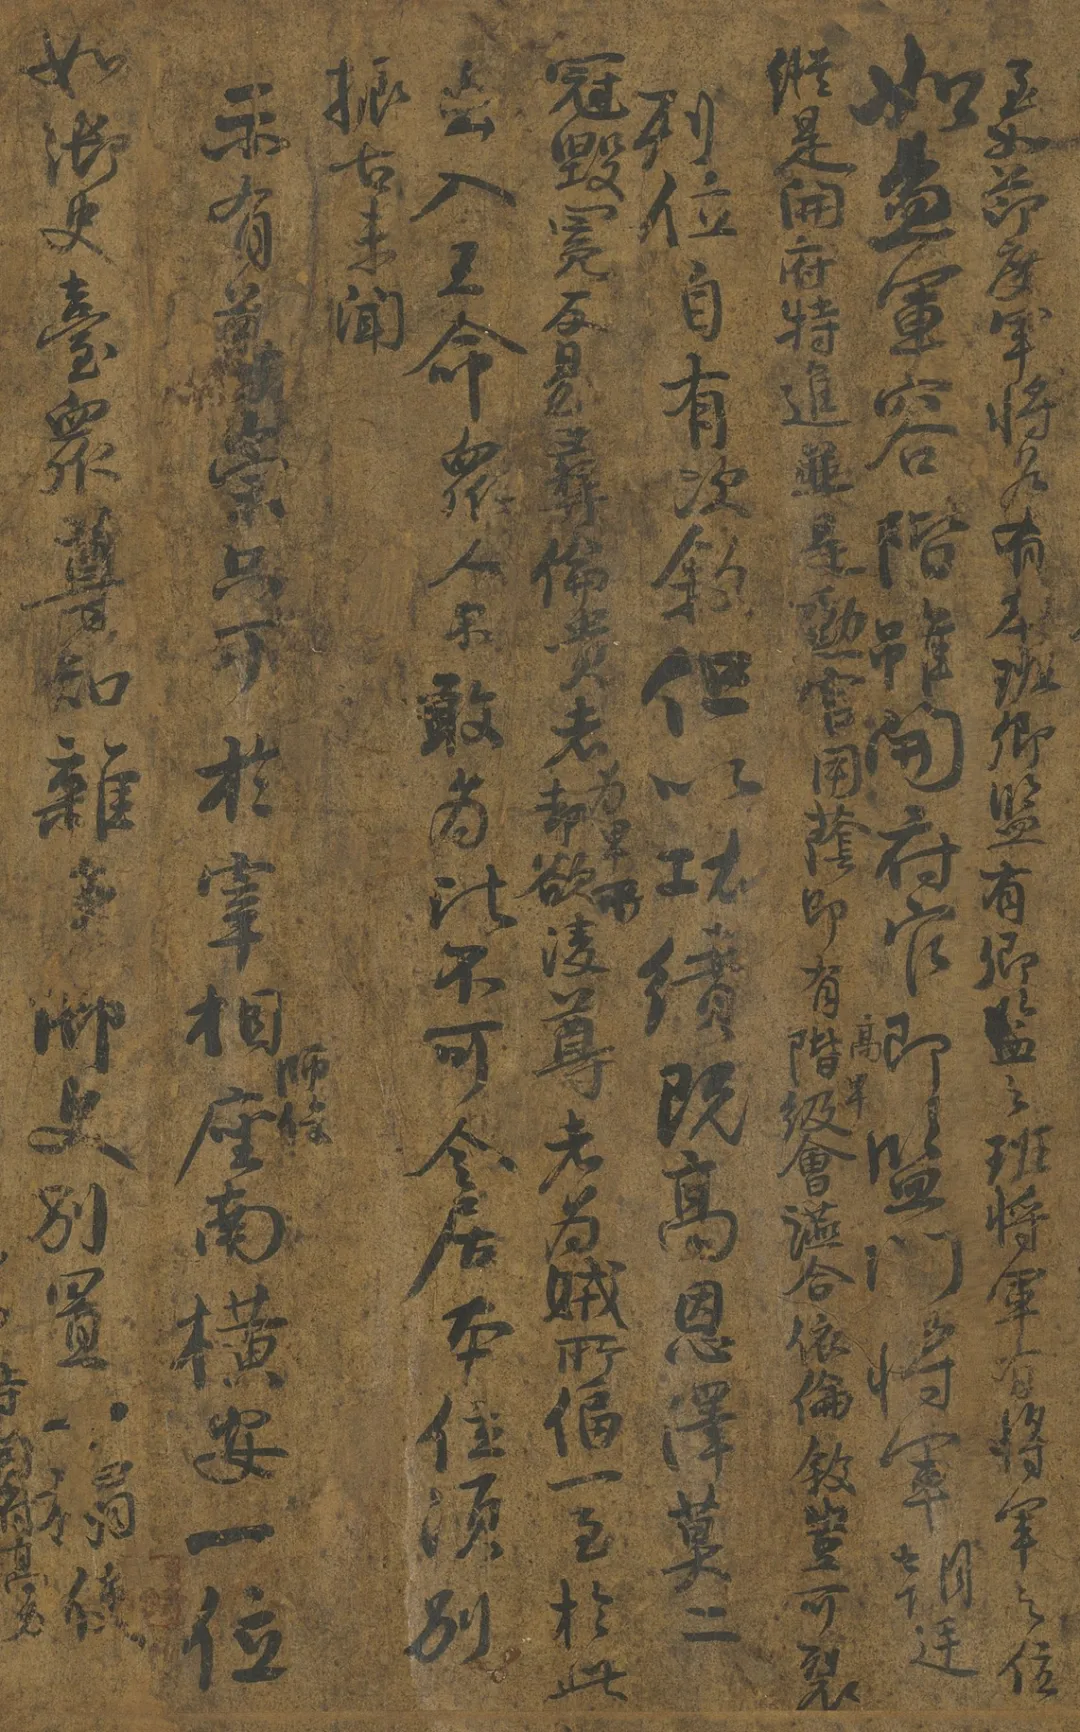 至如節度軍將各有本班卿監有卿監之班將軍有將軍之位
如魚軍容階雖開府官即監門將軍朝廷
縱是開府特進並是勳官用蔭即有高卑階級會讌合依倫敘豈可裂
列位自有次敘但以功績既高恩澤莫二
冠毀冕反易彝倫貴者為卑所却欲淩尊者為賊所偪一至於此
出入王命眾人不敢為比不可令居本位須別
振古未聞
示有尊崇只可於宰相師保座南橫安一位
如御史臺眾尊知雜事御史別置一榻使